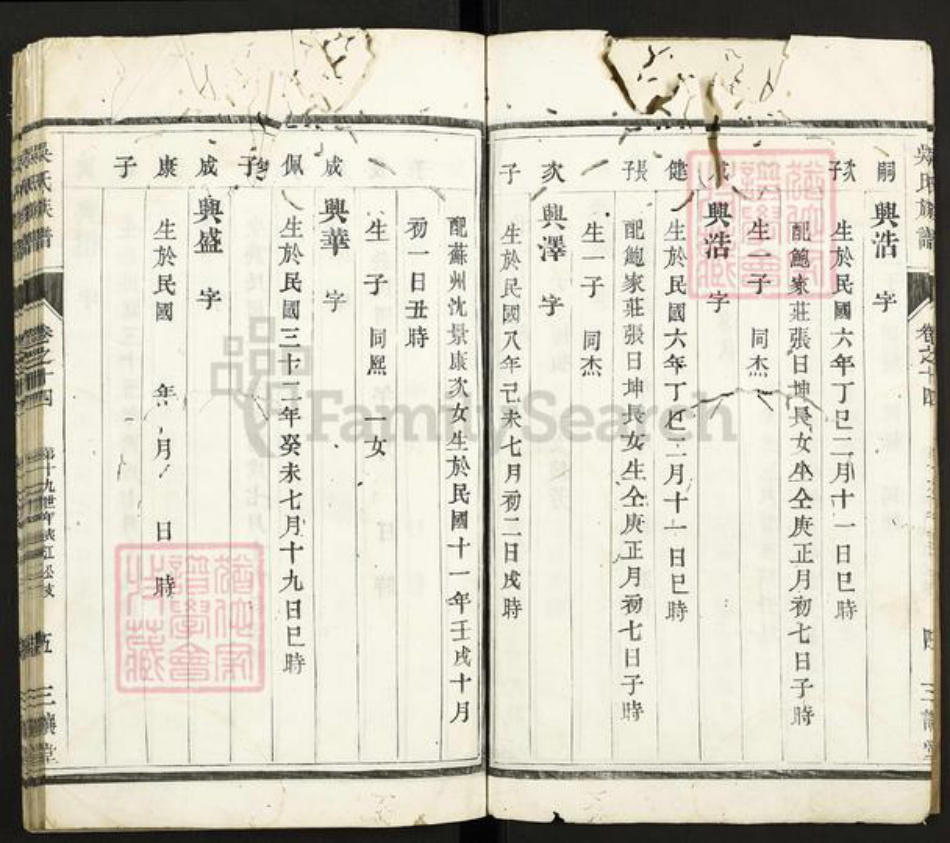 吳氏族譜
卷之十四
三讓堂
嗣 興浩 字
子 生於民國六年丁巳二月十一日巳時
配鮑家莊張日坤長女生仝庚正月初七日子時
生一子 同杰
興浩 字
健 生於民國六年丁巳二月十一日巳時
長子 配鮑家莊張日坤長女生仝庚正月初七日子時
生一子 同杰
次 興澤 字
子 生於民國八年己未七月初二日戌時
配蘇州沈景康次女生於民國十一年壬戌十月
初一日丑時
生一子 同熙 一女
成 興華 字
佩 生於民國三十二年癸未七月十九日巳時
子
成 興盛 字
康 生於民國 年 月 日 時
子
吳氏族譜
卷之十四
第十九世
五
三讓堂
FamilySearch